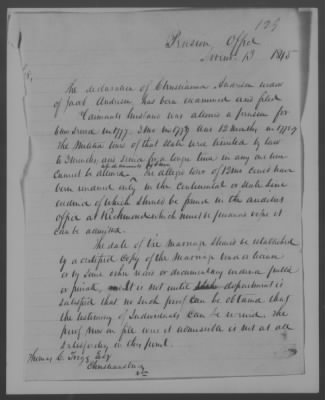 129
Pension Office
Novem. 13 1845
The declaration of Christianna Anderson widow
of Jacob Anderson has been examined and filed
Claimants husband was allowed a pension for
6 mo service in 1777. 3 mo in 1778 and 12 months in
The Militia tours of that state were limited by law
to 3 months, and service for a longer time in any one
cannot be allowed. The alleged tour of 12 mo could have
been rendered only in the continental or state line
evidence of which should be found in the auditors
office at Richmond which must be produced before it
can be admitted.
The date of the Marriage should be established
by a certified Copy of the Marriage bond or license
or by some other record or documentary evidence public
or private, It is not until department is
satisfied that no such proof can be obtained that
the testimony of Individuals can be received. The
proof now on file were it admissible is not at all
satisfactory on this point.
Thomas C. Trigg Esq
Christiansburg
Va